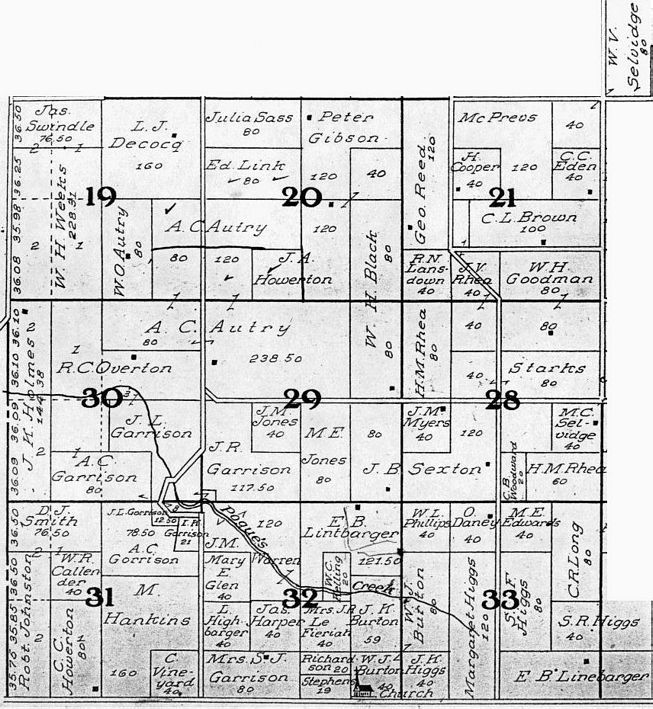 W. V.
Selvidge
80
36.50
Jas.
Swindle
76.50
2 1
L. J.
Decocq
160
Julia Sass
80
Peter
Gibson
120
40
Geo. Reed
120
McPrevs
40
120
H.
Cooper
40
C. C.
Eden
40
2
Ed. Link
80
19
20
21
36.25
35.98
36.08
W. H Weeks
228.31
2 1
W. O Autry
80
A. C Autry
80
120
120
J. A.
Howerton
1
W. H. Black
80
80
C. L. Brown
100
R. N.
Lans-
down
40
J. V.
Rhea
40
W. H.
Goodman
80
36.10
36.10
36.09
36.09
2
J. K Holmes
144.38
2
1
A. C. Autry
80
238.50
R. C. Overton
1
H. M. Rhea
80
40
80
40
Starks
80
30
29
28
J. L.
Garrison
A. C.
Garrison
80
J. R.
Garrison
117.50
J. M.
Jones
40
M. E.
Jones
80
80
J. B Sexton
J. M.
Myers
40
120
M. C.
Sel-
vidge
40
C. B.
Woodward
20
H. M. Rhea
60
36.50
36.50
35.85
35.76
D. J.
Smith
76.50
2 1
J. L. Garrison
12.50
78.50
A. C.
Garrison
J. R
Garrison
21
Pogue's
120
J. M.
Warren
E. B.
Lintbarger
121.50
Creek
W. L.
Phillips
40
O.
Daney
40
M. E.
Edwards
40
C. R. Long
80
W. R.
Callen
der
40
31
32
33
Robt. Johnston
2
M.
Hankins
160
C. C.
Howerton
80
C.
Vine-
yard
40
Mary
E
Glen
40
W. C.
20
L.
High-
barger
40
Jas.
Harper
40
Mrs. J. R
Le
Fieriah
40
J. H.
Burton
59
W. J.
Burton
80
Margaret Higgs
120
S. F.
Higgs
80
S. R. Higgs
40
Mrs. S. J.
Garrison
80
Richard-
son 20
Stephens
19
W. J.
Burton
40
Church
J. H.
Higgs
40
E B Linebarger